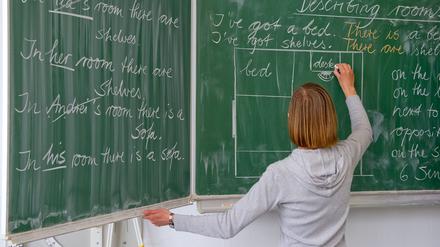 In Lea's room there is a
shelves
In her room there are
Shelves.
In Andrei's room there is a
sofa.
In his room there is a sofa.
Describing room
I've got a bed. There is a be
I've got shelves. There are
bed
desk
on the
on the
next to
opposi
on the s
6 Sen